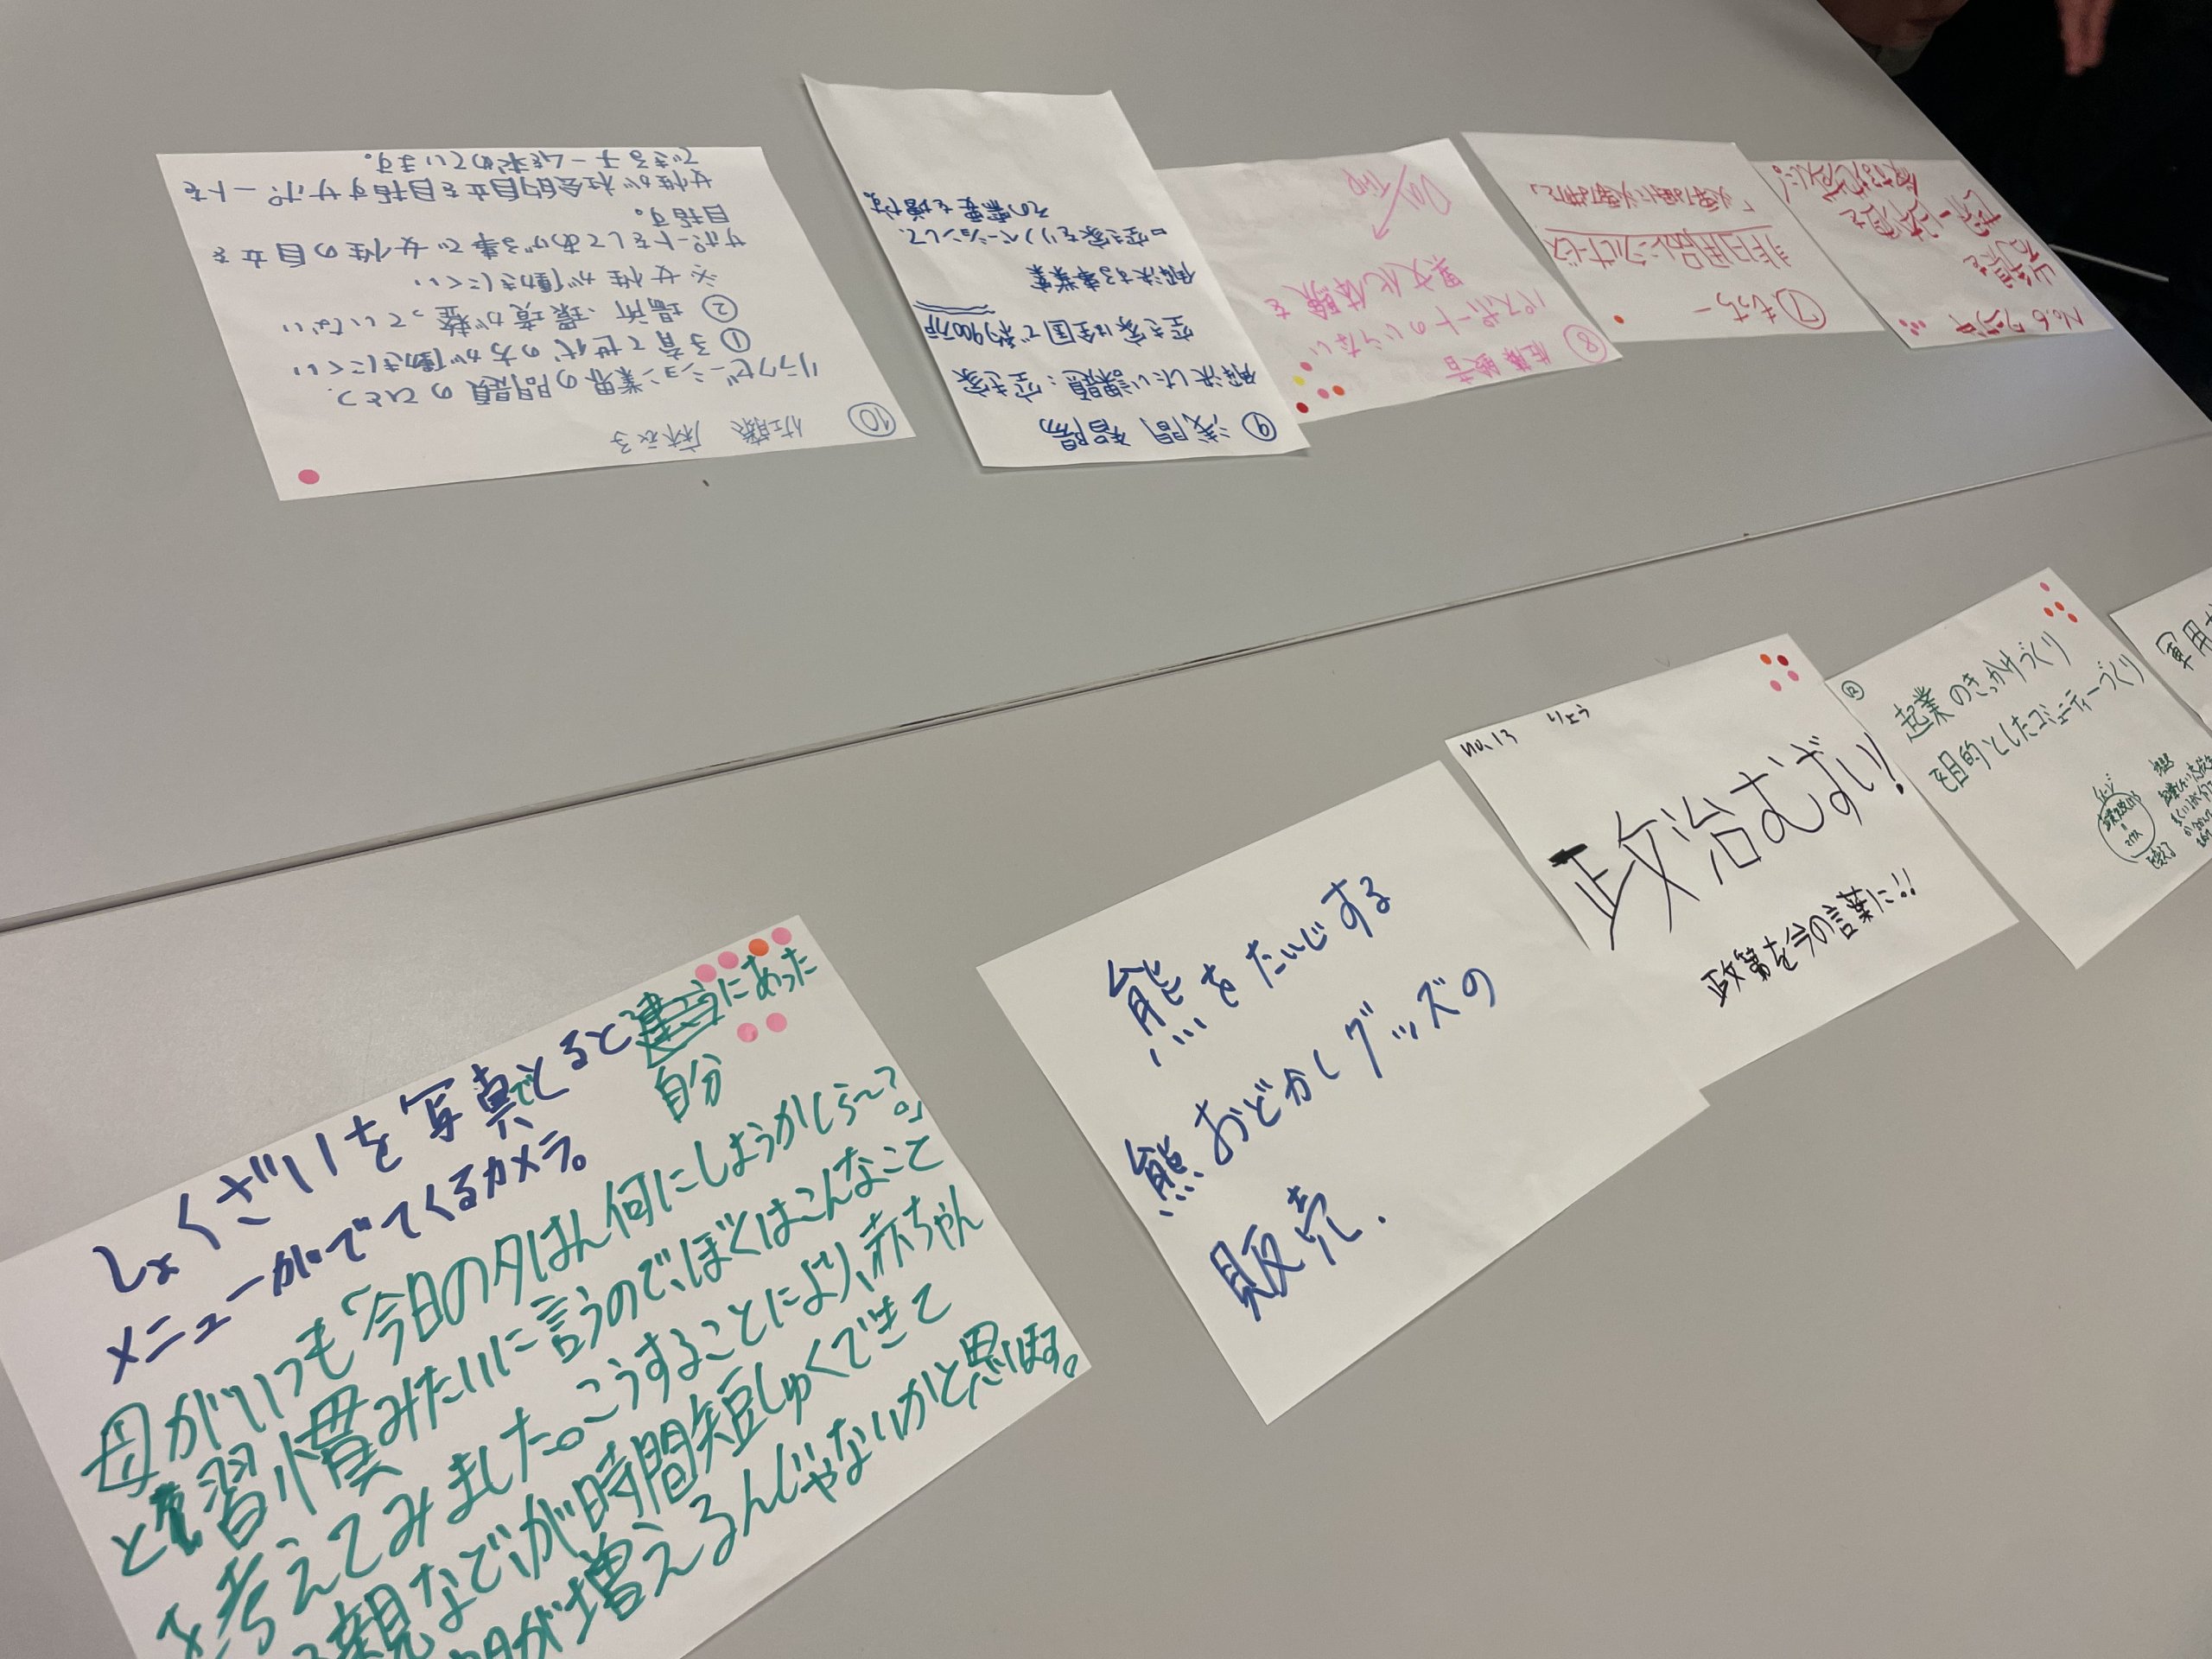 しょくざいを写真でとると自分にあった
メニューがでてくるカメラ。
母がいつも「今日の夕はん何にしようかしら〜?」
と習慣みたいに言うので、ぼくはこんなこと
を考えてみました。こうすることにより、赤ちゃん
親などが時間短しゅくできて
が増えるんじゃないかと思います。
熊をたいじする
熊おどかしグッズの
販売.
no.13 りょう
政治むずい!
政策を今の言葉に!!
⑫
起業のきっかけづくり
を目的としたコミュニティーづくり
軍用
⑩ 佐藤 麻衣子
リラクゼーション業界の問題のひとつ.
① 子育て世代の方が働きにくい
② 場所、環境が整っていない
※ 女性が働きにくい
サポートをしてあげる事で女性の自立を
目指す。
女性が社会的自立を目指すサポートを
できるチームを求めています。
⑨ 浅間 智陽
解決したい課題:空き家
空き家は全国で約900万戸
解決する事業案
空き家をリノベーションして、
その需要を増やす。
⑧ 佐藤
パスポートのいらない
異文化体験を
⑦ もっちー
非日用品レンタルサービス
No.6